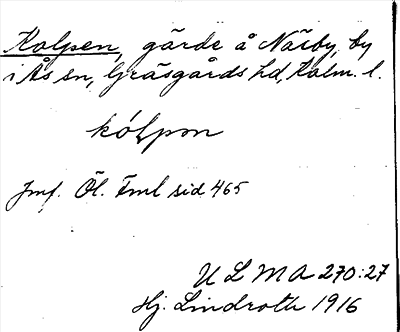 Kolpen, gärde å Näsby, by
i Ås sn, Gräsgårds hd, Kalm. l.
kó̄lpən
Jmf. Öl. Fml sid 465
ULMA 270:27
Hj. Lindroth 1916